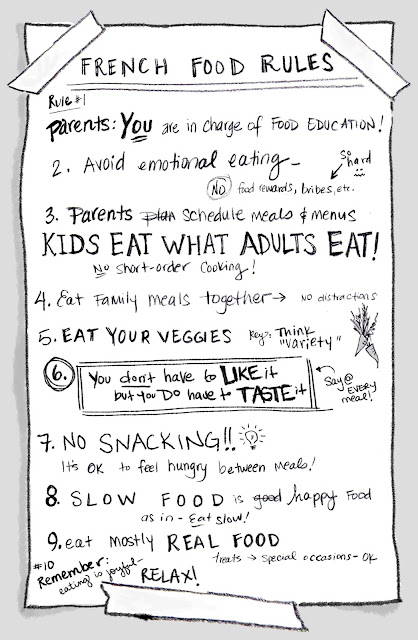 FRENCH FOOD RULES
Rule #1
Parents: You are in charge of FOOD EDUCATION!
2. Avoid emotional eating -
So hard
NO food rewards, bribes, etc.
3. Parents plan schedule meals & menus
KIDS EAT WHAT ADULTS EAT!
No short-order cooking!
4. Eat Family meals together → no distractions
5. EAT YOUR VEGGIES Key: Think "variety"
6. You don't have to LIKE it
but you DO have to TASTE it
Say @ EVERY meal!
7. NO SNACKING!!
It's OK to feel hungry between meals!
8. SLOW FOOD is good happy Food
as in - Eat slow!
9. eat mostly REAL FOOD
treats → special occasions - OK
#10
Remember:
eating is joyful - RELAX!